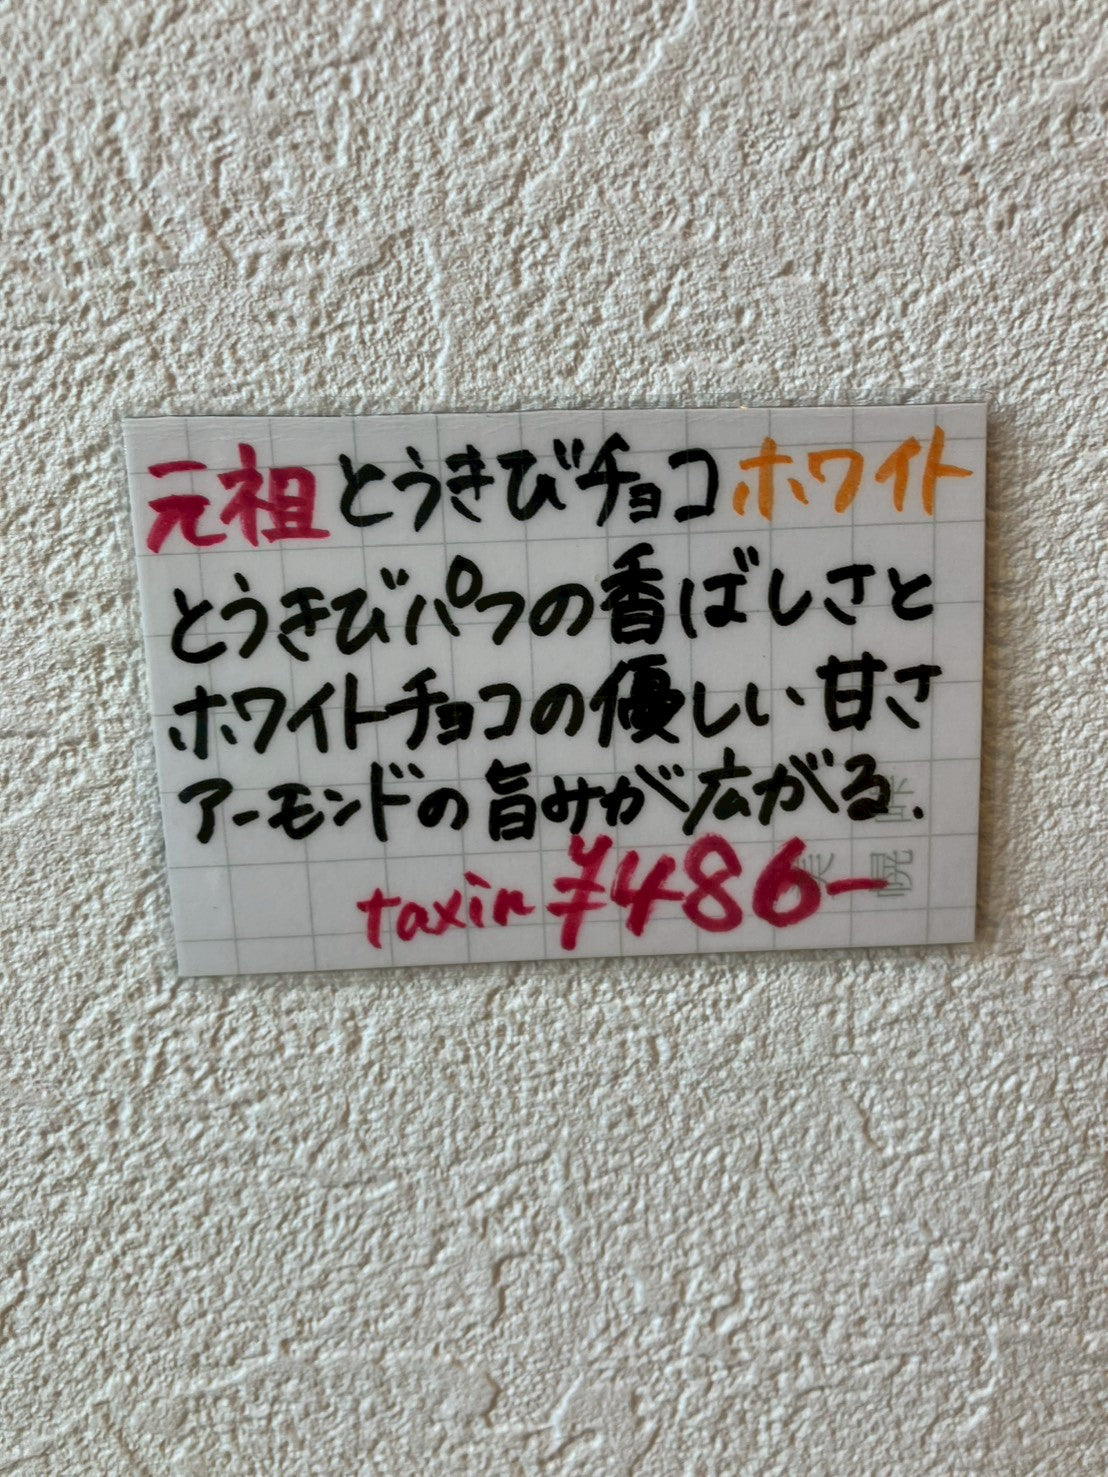 元祖とうきびチョコホワイト
とうきびパフの香ばしさと
ホワイトチョコの優しい甘さ
アーモンドの旨みが広がる.
taxin ¥486-